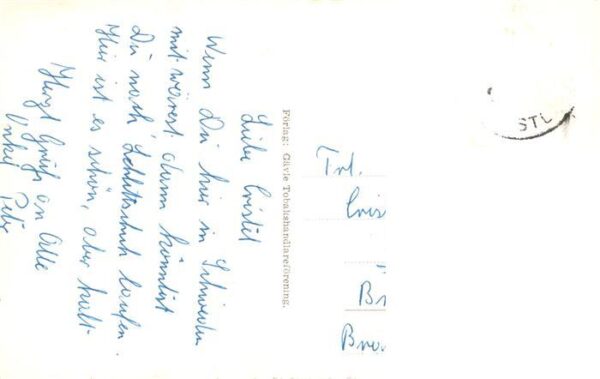 Liebe Cristel
Wenn Du hier in Schweden
mit wärest dann könntest
Du noch Schlittschuh laufen.
Hier ist es schön, aber kalt.
Herzl Grüße an Alle
Onkel Peter
Förlag: Gävle Tobakshandlareförening.
Frl.
Cris
B
Bre
STL